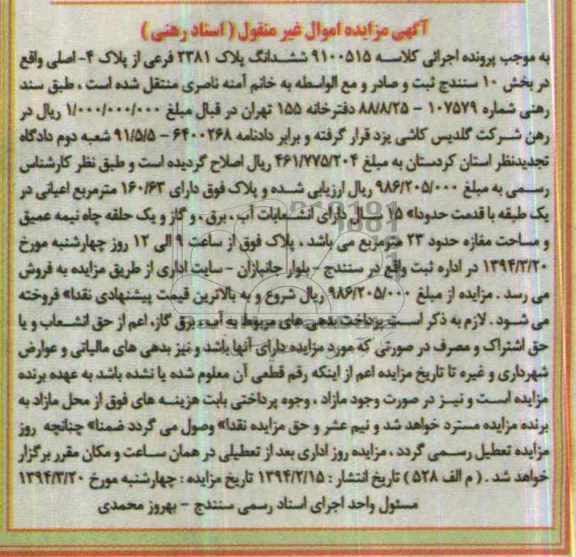 آگهی مزایده اموال غیر منقول ( اسناد رهنی )
به موجب پرونده اجرائی کلاسه ۹۱۰۰۵۱۵ ششدانگ پلاک ۲۳۸۱ فرعی از پلاک ۴- اصلی واقع
در بخش ۱۰ سنندج ثبت و صادر و مع الواسطه به خانم آمنه ناصری منتقل شده است ، طبق سند
رهنی شماره ۱۰۷۵۷۹ - ۸۸/۸/۲۵ دفترخانه ۱۵۵ تهران در قبال مبلغ ۱/۰۰۰/۰۰۰/۰۰۰ ریال در
رهن شرکت گلدیس کاشی یزد قرار گرفته و برابر دادنامه ۶۴۰۰۲۶۸ - ۹۱/۵/۵ شعبه دوم دادگاه
تجدیدنظر استان کردستان به مبلغ ۴۶۱/۷۷۵/۲۰۴ ریال اصلاح گردیده است و طبق نظر کارشناس
رسمی به مبلغ ۹۸۶/۲۰۵/۰۰۰ ریال ارزیابی شده و پلاک فوق دارای ۱۶۰/۶۳ مترمربع اعیانی در
یک طبقه با قدمت حدودا» ۱۵ سال دارای انشعابات آب ، برق ، و گاز و یک حلقه چاه نیمه عمیق
و مساحت مغازه حدود ۲۳ مترمربع می باشد ، پلاک فوق از ساعت ۹ الی ۱۲ روز چهارشنبه مورخ
۱۳۹۴/۳/۲۰ در اداره ثبت واقع در سنندج - بلوار جانبازان - سایت اداری از طریق مزایده به فروش
می رسد . مزایده از مبلغ ۹۸۶/۲۰۵/۰۰۰ ریال شروع و به بالاترین قیمت پیشنهادی نقدا» فروخته
می شود . لازم به ذکر است پرداخت بدهی های مربوط به آب، برق گاز، اعم از حق انشعاب و یا
حق اشتراک و مصرف در صورتی که مورد مزایده دارای آنها باشد و نیز بدهی های مالیاتی و عوارض
شهرداری و غیره تا تاریخ مزایده اعم از اینکه رقم قطعی آن معلوم شده یا نشده باشد به عهده برنده
مزایده است و نیز در صورت وجود مازاد ، وجوه پرداختی بابت هزینه های فوق از محل مازاد به
برنده مزایده مسترد خواهد شد و نیم عشر و حق مزایده نقدا» وصول می گردد ضمنا» چنانچه روز
مزایده تعطیل رسمی گردد ، مزایده روز اداری بعد از تعطیلی در همان ساعت و مکان مقرر برگزار
خواهد شد . ( م الف ۵۲۸ ) تاریخ انتشار : ۱۳۹۴/۲/۱۵ تاریخ مزایده : چهارشنبه مورخ ۱۳۹۴/۳/۲۰
مسئول واحد اجرای اسناد رسمی سنندج - بهروز محمدی